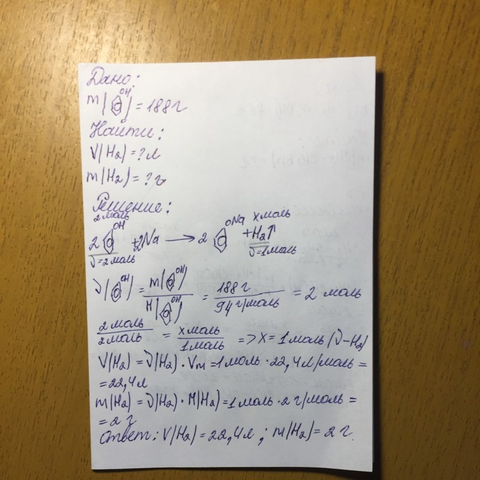 Дано:
m(OH) = 188 г
Найти:
V(H2) = ? л
m(H2) = ? г
Решение:
2 моль
OH ONa x моль
2 + 2Na → 2 + H2↑
ν = 2 моль ν = 1 моль
ν(OH) = m(OH) / M(OH) = 188 г / 94 г/моль = 2 моль
2 моль / 2 моль = x моль / 1 моль => x = 1 моль (ν - H2)
V(H2) = ν(H2) · Vm = 1 моль · 22,4 л/моль =
= 22,4 л
m(H2) = ν(H2) · M(H2) = 1 моль · 2 г/моль =
= 2 г
Ответ: V(H2) = 22,4 л ; m(H2) = 2 г.